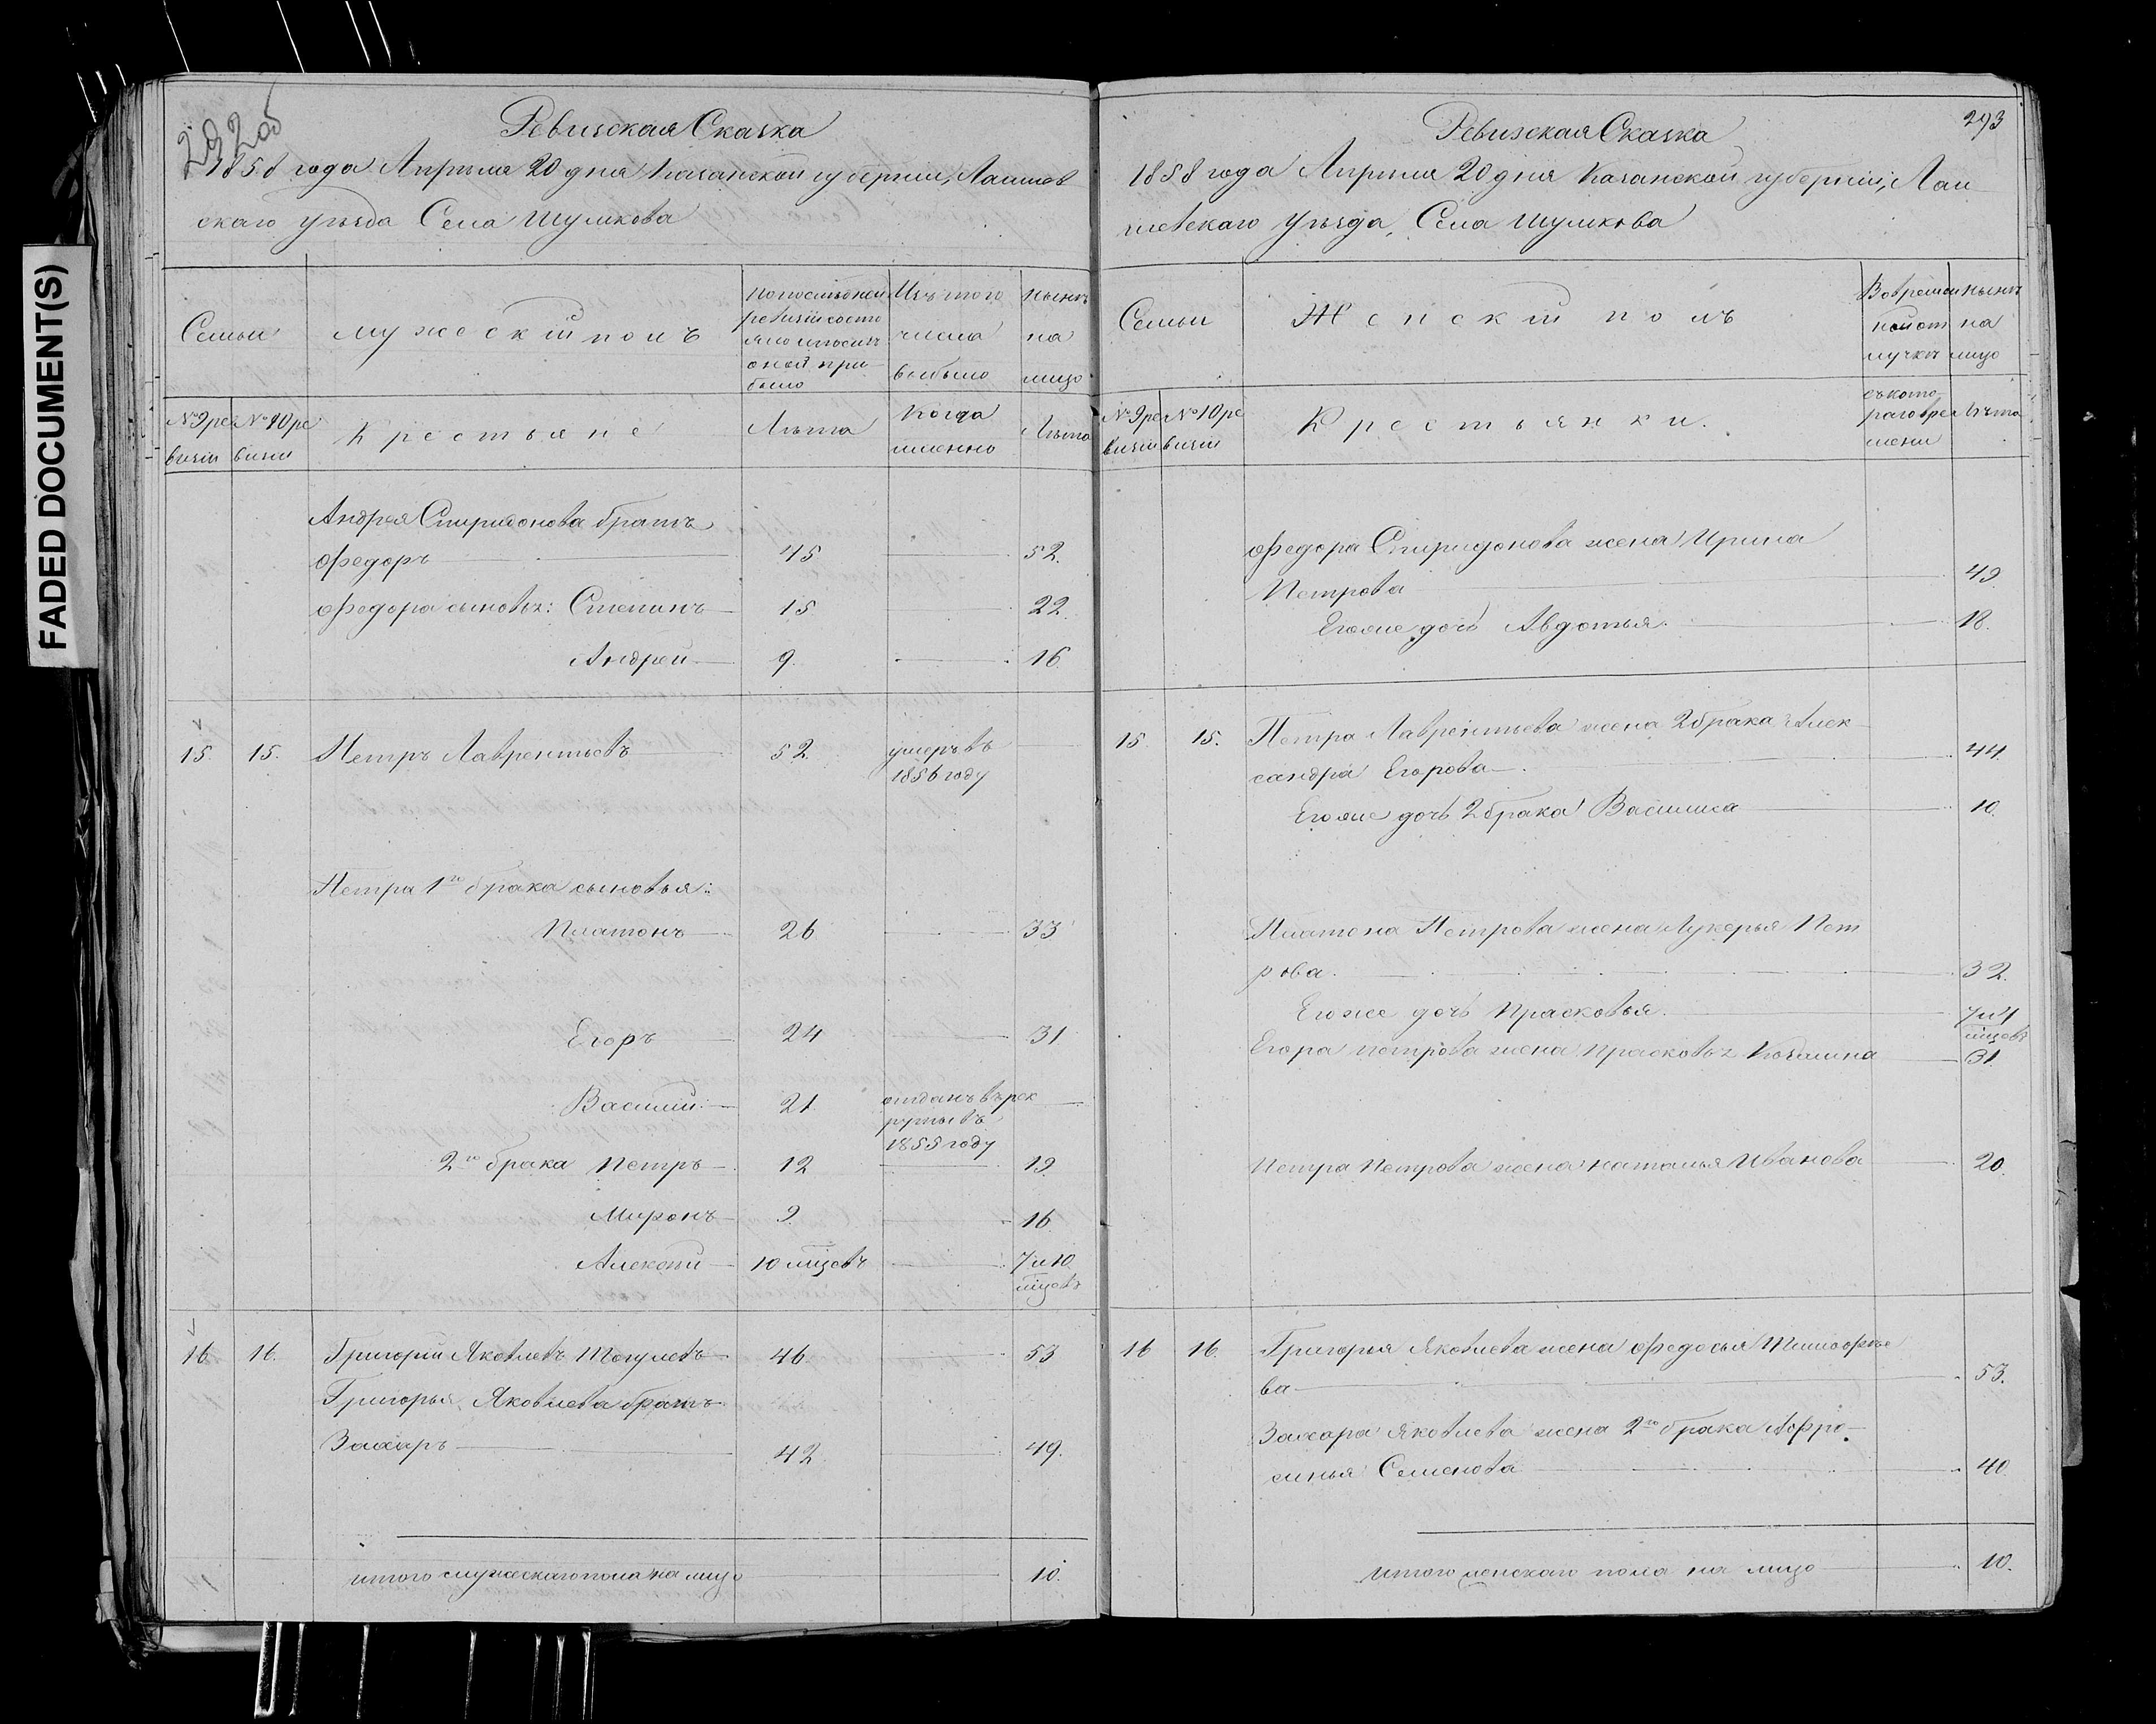 FADED DOCUMENT(S)
292 об
Ревизская Сказка
1858 года Апрѣля 20 дня Казанской губерніи, Лаишев
скаго уѣзда Села Шумкова
Семьи
мужескій полъ
По послѣдней
ревизіи состо
яло и послѣ
оной при-
было
Изъ того
числа
выбыло
Нынѣ
на
лицо
№ 9 ре
визіи
№ 10 ре
визіи
Крестьяне
Лѣта
Когда
именно
Лѣта
Андрея Спиридонова братъ
Федоръ 45 52.
Федора сыновья: Степанъ 15 22
Андрей 9. 16
15. 15. Петръ Лаврентьевъ 52. умеръ въ
1856 году
Петра 1го брака сыновья:
Платонъ 26 33
Егоръ 24 31
Василій 21 отданъ въ рек
руты въ
1855 году
2го брака Петръ 12 19
Миронъ 9 16
Алексѣй 10 мцовъ 7 и 10
мцовъ
16 16. Григорій Яковлевъ Могулевъ 46 53
Григорья Яковлева братъ
Захаръ 42 49.
итого мужескаго пола на лицо 10.
293
Ревизская Сказка
1858 года Апрѣля 20 дня Казанской губерніи, Лаи
шевскаго уѣзда, Села Шумкова
Семьи
Женскій полъ
Во времен
ной от
лучкѣ
нынѣ
на
лицо
№ 9 ре
визіи
№ 10 ре
визіи
Крестьянки.
съ кото
раго вре
мени
Лѣта
Федора Спиридонова жена Ирина
Петрова 49
Его же дочь Авдотья. 18.
15. 15. Петра Лаврентьева жена 2 брака Алек
сандра Егорова 44.
Его же дочь 2 брака Василиса 10.
Платона Петрова жена Лукерья Пет
рова. 32.
Его же дочь Прасковья. 7 и 1
мцовъ
Егора Петрова жена Прасковья Козьмина 31.
Петра Петрова жена Наталья Иванова 20.
16 16. Григорья Яковлева жена Федосья Тимофѣе
ва 53.
Захара Яковлева жена 2го брака Афро
синья Семенова 40
итого женскаго пола на лицо 10.